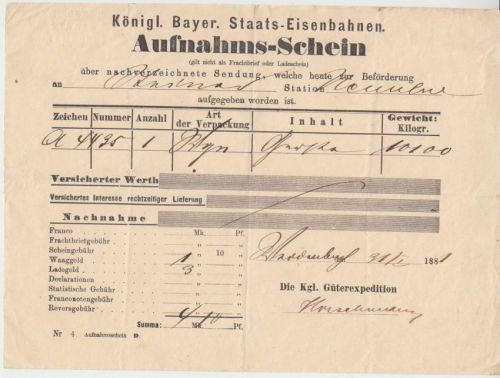 Königl. Bayer. Staats-Eisenbahnen.
Aufnahms-Schein
(gilt nicht als Frachtbrief oder Ladeschein)
über nachverzeichnete Sendung, welche heute zur Beförderung
an Station
aufgegeben worden ist.
Zeichen Nummer Anzahl Art der Verpackung Inhalt Gewicht: Kilogr.
1 Wgn Gerste 10100
Versicherter Werth
Versichertes Interesse rechtzeitiger Lieferung
Nachnahme
Franco Mk. Pf.
Frachtbriefgebühr " "
Scheingebühr " 10 "
Waaggeld 1 " "
Ladegeld 3 " "
Declarationen " "
Statistische Gebühr " "
Franconotengebühr " "
Reversgebühr " "
Summa: 4 Mk. 10 Pf.
31/ 1881
Die Kgl. Güterexpedition
Nr 4. Aufnahmsschein